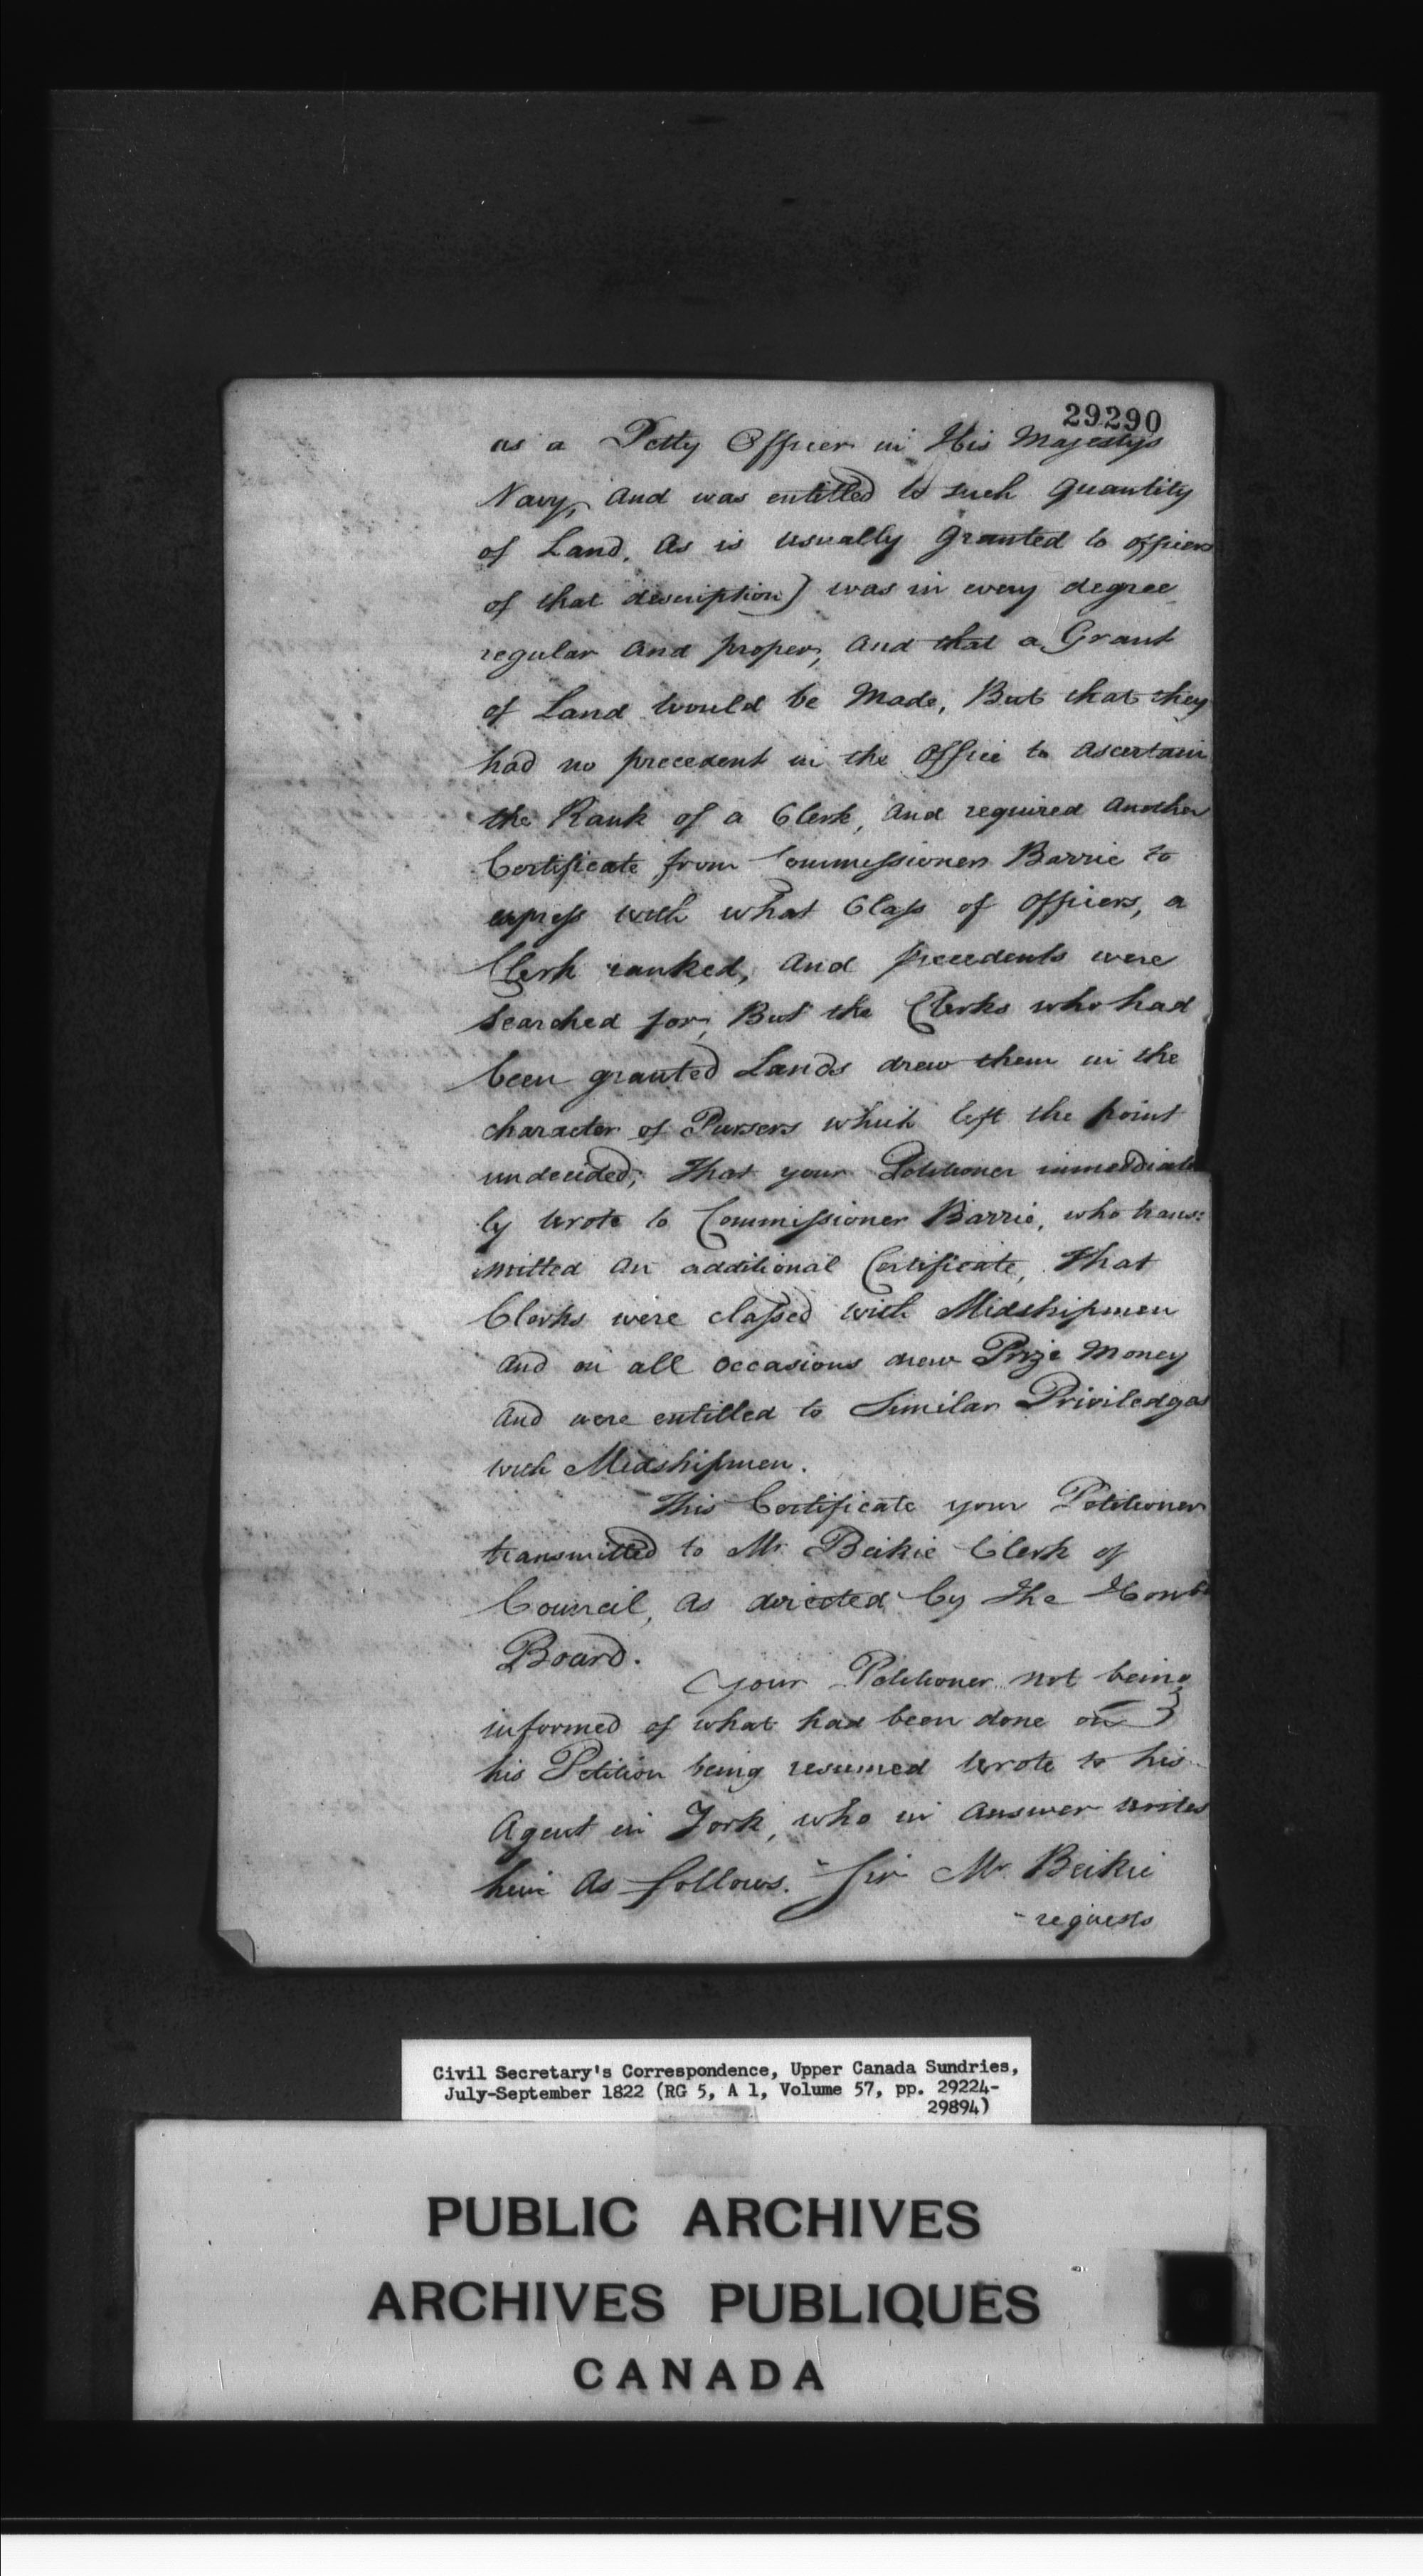 29290
as a Petty Officer in His Majestys
Navy, and was entitled to such quantity
of Land, as is usually granted to officers
of that description) was in every degree
regular and proper, and that a Grant
of Land would be Made, But that they
had no precedent in the Office to ascertain
the Rank of a Clerk, and required another
Certificate from Commissioner Barrie to
express with what Class of Officers, a
Clerk ranked, and precedents were
Searched for, But the Clerks who had
been granted Lands drew them in the
character of Pursers which left the point
undecided; That your Petitioner immediate
ly wrote to Commissioner Barrie, who trans:
mitted an additional Certificate, that
Clerks were classed with Midshipmen
and on all occasions drew Prize Money
and were entitled to Similar Priviledges
with Midshipmen.
This Certificate your Petitioner
transmitted to Mr. Beikie Clerk of
Council, as directed by the Honble
Board.
your Petitioner not being
informed of what had been done on
his Petition being resumed wrote to his
Agent in York, who in answer writes
him as follows. "Sir Mr. Beikie
"requests
Civil Secretary's Correspondence, Upper Canada Sundries,
July-September 1822 (RG 5, A 1, Volume 57, pp. 29224-
29894)
PUBLIC ARCHIVES
ARCHIVES PUBLIQUES
CANADA